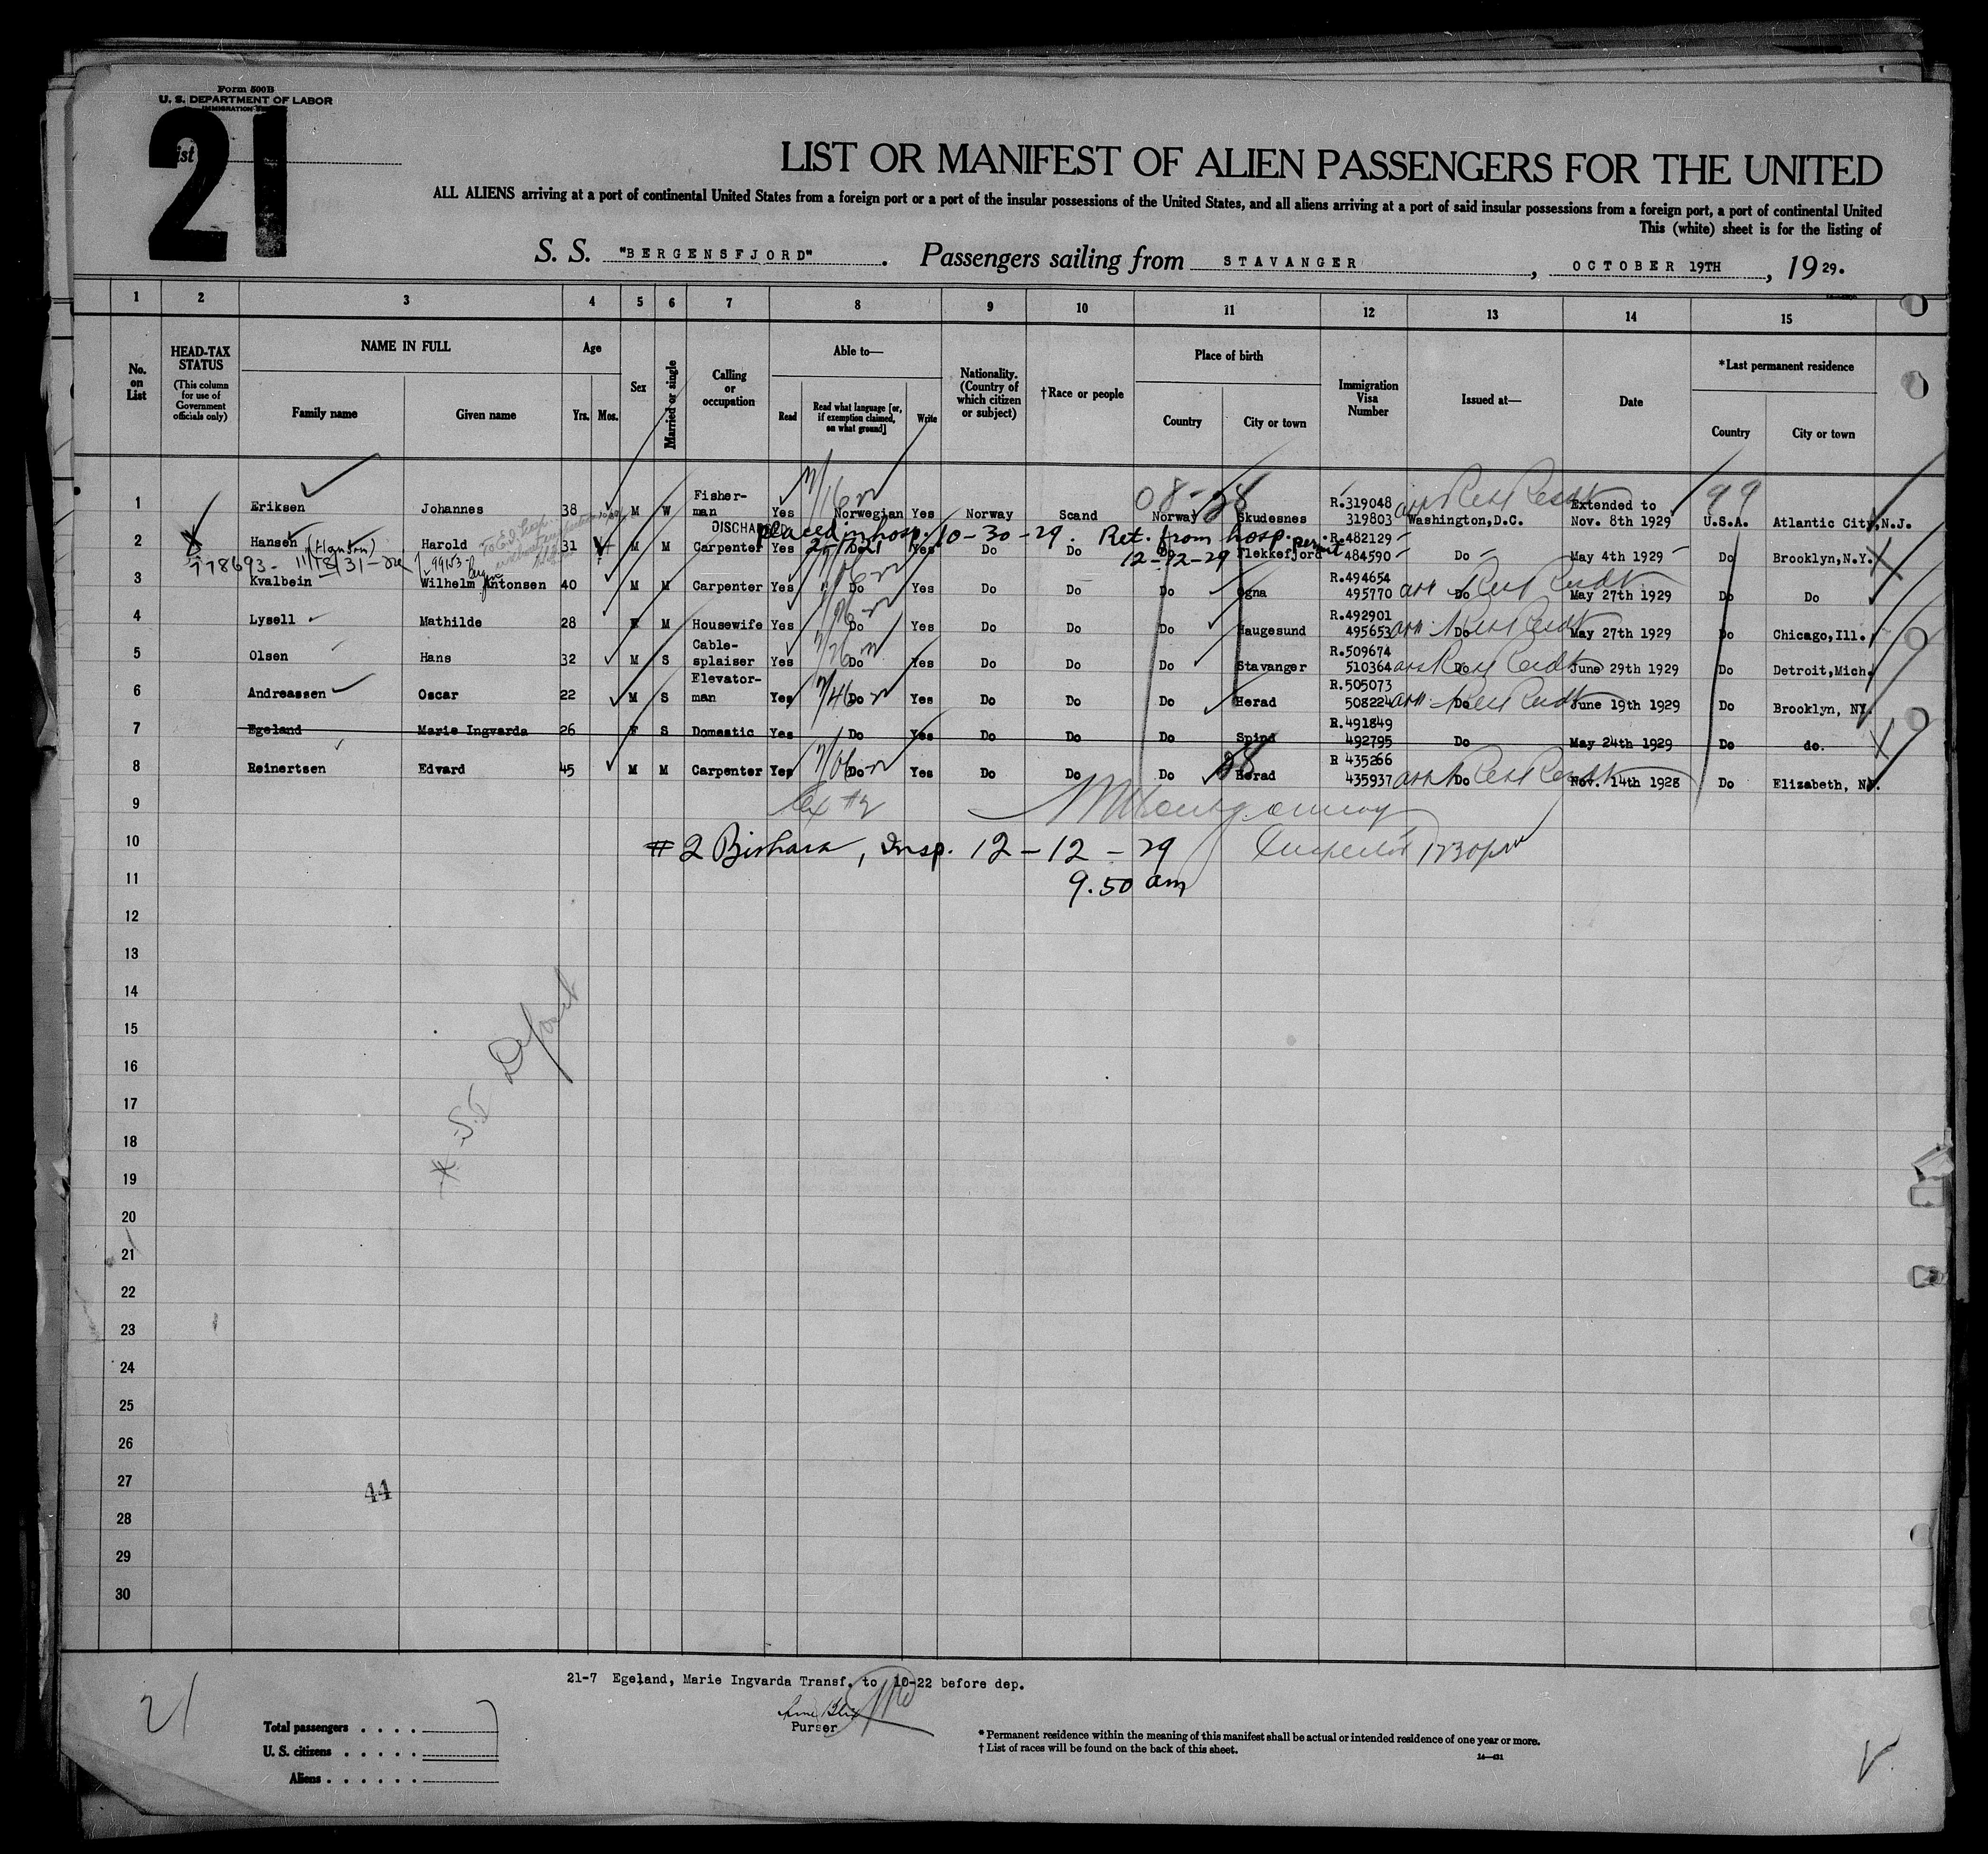 Form 500B
U. S. DEPARTMENT OF LABOR
21
LIST OR MANIFEST OF ALIEN PASSENGERS FOR THE UNITED
ALL ALIENS arriving at a port of continental United States from a foreign port or a port of the insular possessions of the United States, and all aliens arriving at a port of said insular possessions from a foreign port, a port of continental United
This (white) sheet is for the listing of
S. S. "BERGENSFJORD". Passengers sailing from STAVANGER, OCTOBER 19TH, 1929.
1 2 3 4 5 6 7 8 9 10 11 12 13 14 15
No. on List
HEAD-TAX STATUS (This column for use of Government officials only)
NAME IN FULL
Family name Given name
Age
Yrs. Mos.
Sex
Married or single
Calling or occupation
Able to—
Read Read what language [or, if exemption claimed, on what ground] Write
Nationality. (Country of which citizen or subject)
†Race or people
Place of birth
Country City or town
Immigration Visa Number
Issued at—
Date
*Last permanent residence
Country City or town
1 Eriksen Johannes 38 M W Fisher-man Yes Norwegian Yes Norway Scand Norway Skudesnes R.319048 319803 Washington,D.C. Extended to Nov. 8th 1929 U.S.A. Atlantic City,N.J.
08-28 99
placed in hosp. 10-30-29. Ret. from hosp.
12-12-29
2 Hansen (Hanson) Harold 31 M M Carpenter Yes Do Yes Do Do Do Flekkefjord R.482129 484590 Do May 4th 1929 Do Brooklyn,N.Y.
778693- 11/18/31
3 Kvalbein Wilhelm Antonsen 40 M M Carpenter Yes Do Yes Do Do Do Ogna R.494654 495770 Do May 27th 1929 Do Do
4 Lysell Mathilde 28 F M Housewife Yes Do Yes Do Do Do Haugesund R.492901 495653 Do May 27th 1929 Do Chicago,Ill.
5 Olsen Hans 32 M S Cable-splaiser Yes Do Yes Do Do Do Stavanger R.509674 510364 Do June 29th 1929 Do Detroit,Mich.
6 Andreassen Oscar 22 M S Elevator-man Yes Do Yes Do Do Do Herad R.505073 508224 Do June 19th 1929 Do Brooklyn, NY.
7 Egeland Marie Ingvarda 26 F S Domestic Yes Do Yes Do Do Do Spind R.491849 492795 Do May 24th 1929 Do do.
8 Reinertsen Edvard 45 M M Carpenter Yes Do Yes Do Do Do Herad R 435266 435937 Do Nov. 14th 1928 Do Elizabeth, NJ.
9
10 #2 Bishara, Insp. 12-12-29
11 9.50 am
12
13
14
15
16
17
18
19
20
21
22
23
24
25
26
27
28
29
30
44
21-7 Egeland, Marie Ingvarda Transf. to 10-22 before dep.
Purser
21
Total passengers
U. S. citizens
Aliens
* Permanent residence within the meaning of this manifest shall be actual or intended residence of one year or more.
† List of races will be found on the back of this sheet.